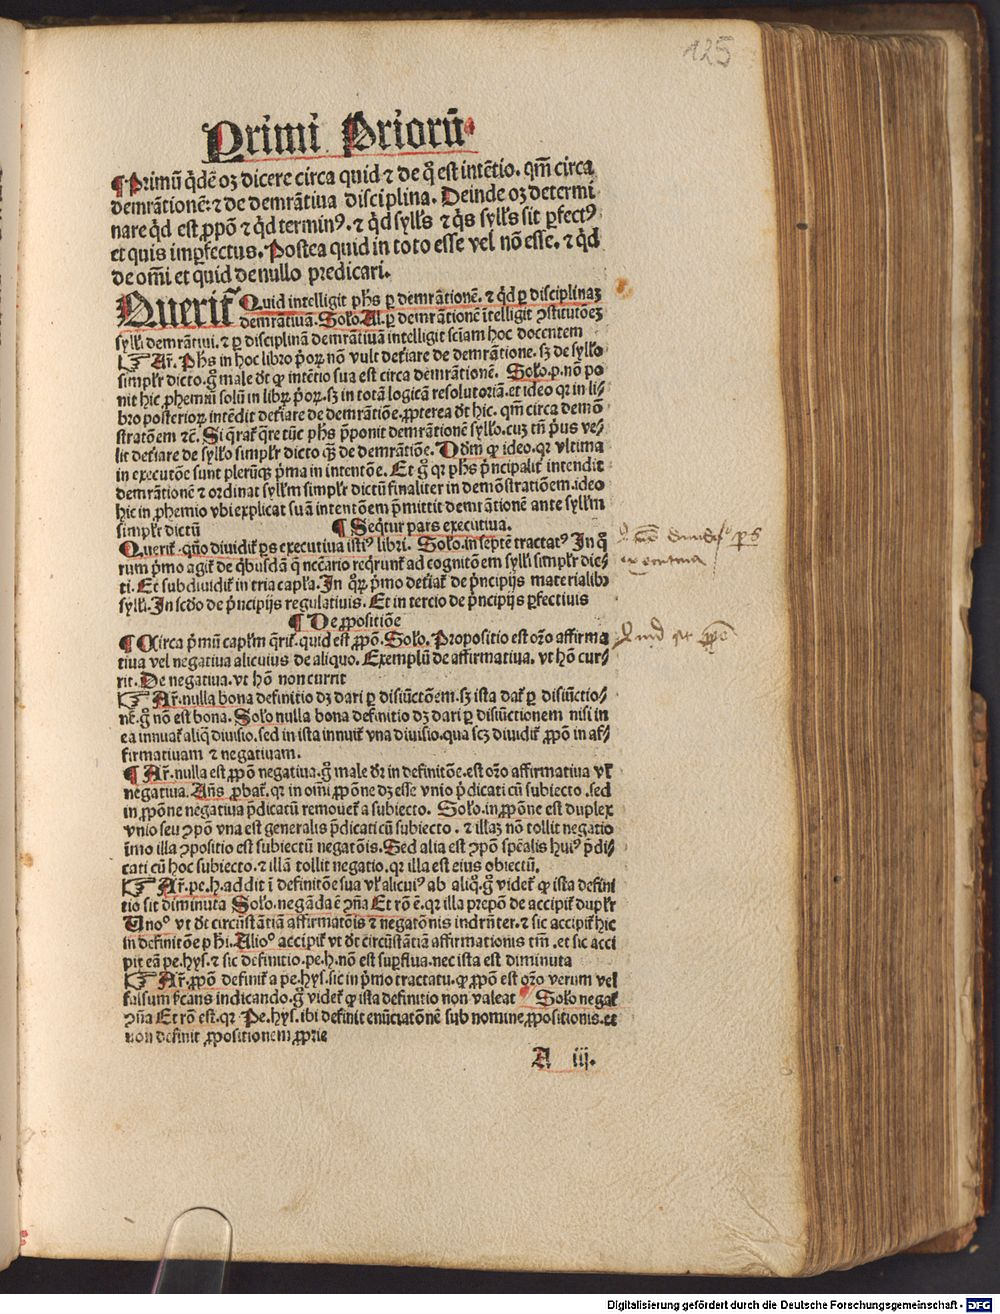 125
Primi Priorū
¶ Primū qͥdē oꝫ dicere circa quid ⁊ de qͦ est intētio. qm̄ circa
demrātionē: ⁊ de demrātiua disciplina. Deinde oꝫ determi
nare qͥd est ꝓpō ⁊ qͥd terminꝰ. ⁊ qͥd syll's ⁊ qͥs syll's sit ꝑfectꝰ
et quis imꝑfectus. Postea quid in toto esse vel nō esse. ⁊ qͥd
de om̄i et quid de nullo predicari.
Querit̄ Quid intelligit ph's ꝑ demrātionē. ⁊ qͥd ꝑ disciplinaꝫ
demrātiuā. Solo. Al. ꝑ demrātionē ītelligit ↄstitutōeꝫ
sylli demrātiui. ⁊ ꝑ disciplinā demrātiuā intelligit sciam hoc docentem
☞ Ar̄. Ph's in hoc libro p̄oꝝ nō vult det̄iare de demrātione. sꝫ de syllo
simplr̄ dicto. gͦ male dt̄ ꝙ intētio sua est circa demrātionē. Solo. p. nō po
nit hic ꝓhemiū solū in libꝝ p̄oꝝ. sꝫ in totā logicā resolutoriā. et ideo qꝛ in li⸗
bro posterioꝝ intēdit det̄iare de demrātiōe. ꝓpterea dt̄ hic. qm̄ circa demō
stratōem ⁊c̄. Si q̄rat̄ q̄re tūc ph's p̄ponit demrātionē syllo. cuꝫ tn̄ pͥus ve⸗
lit det̄iare de syllo simplr̄ dicto qꝫ̄ de demrātiōe. Dōm ꝙ ideo. qꝛ vltima
in executōe sunt plerūqꝫ pͥma in intentōe. Et gͦ qꝛ ph's pͥncipalit̄ intendit
demrātionē ⁊ ordinat syllm simplr̄ dictū finaliter in demōstratiōem. ideo
hic in ꝓhemio vbi explicat suā intentōem p̄mittit demrātionē ante syllm
simplr̄ dictū ¶ Seqͥtur pars executiua.
Querit̄. qūo diuidit̄ ꝑs executiua istiꝰ libri. Solo. in septē tractatꝰ In qͦ
rum pͥmo agit̄ de qͥbusdā q̄ necc̄ario reqͥrunt̄ ad cognitōem sylli simplr̄ dic⸗
ti. Et subdiuidit̄ in tria capl̄a. In qͦꝝ pͥmo det̄iat̄ de pͥncipijs materialibꝰ
sylli. In scd̄o de pͥncipijs regulatiuis. Et in tercio de pͥncipijs ꝑfectiuis
¶ De ꝓpositiōe
¶ Circa pͥmū capl̄m q̄rit̄. quid est ꝓpō. Solo. Propositio est oro affirma
tiua vel negatiua alicuius de aliquo. Exemplū de affirmatiua. vt hō cur⸗
rit. De negatiua. vt hō non currit
☞ Ar̄. nulla bona definitio dꝫ dari ꝑ disiūctōem. sꝫ ista dat̄ ꝑ disiūctio⸗
nē. gͦ nō est bona. Solo nulla bona definitio dꝫ dari ꝑ disiūctionem nisi in
ea innuat̄ aliq̄ diuisio. sed in ista innuit̄ vna diuisio. qua scꝫ diuidit̄ ꝓpō in af⸗
firmatiuam ⁊ negatiuam.
¶ Ar̄. nulla est ꝓpō negatiua. gͦ male dr̄ in definitōe. est oro affirmatiua vl̄
negatiua. An̄s ꝓbat̄. qꝛ in om̄i ꝓpōne dꝫ esse vnio p̄dicati cū subiecto. sed
in ꝓpōne negatiua p̄dicatū remouet̄ a subiecto. Solo. in ꝓpōne est duplex
vnio seu ↄpō vna est generalis p̄dicati cū subiecto. ⁊ illaꝫ nō tollit negatio
īmo illa ↄpositio est subiectū negatōis. Sed alia est ↄpō spēalis huiꝰ p̄di⸗
cati cū hoc subiecto. ⁊ illā tollit negatio. qꝛ illa est eius obiectū.
☞ Ar̄. pe. h. addit ī definitōe sua vl̄ alicuiꝰ ab aliqͦ. gͦ videt̄ ꝙ ista defini
tio sit diminuta Solo. negāda ē ↄn̄a Et rō ē. qꝛ illa prepō de accipit̄ duplr̄
Unoº vt dt̄ circūstātiā affirmatōis ⁊ negatōnis indrn̄ter. ⁊ sic accipit̄ hic
in definitōe phi. Alioº accipit̄ vt dt̄ circūstātiā affirmationis tm̄. et sic acci
pit eā pe. hys. ⁊ sic definitio. pe. h. nō est suꝑflua. nec ista est diminuta
☞ Ar̄. ꝓpō definit̄ a pe. hys. sic in pͥmo tractatu. ꝙ ꝓpō est oro verum vel
falsum s̄cans indicando. gͦ videt̄ ꝙ ista definitio non valeat Solo negat̄
ↄn̄a Et rō est. qꝛ Pe. hys. ibi definit enūciatōnē sub nomine ꝓpositionis. et
non definit ꝓpositionem ꝓprie
A iii.
executiua
Quid est ꝓpō
Digitalisierung gefördert durch die Deutsche Forschungsgemeinschaft - DFG